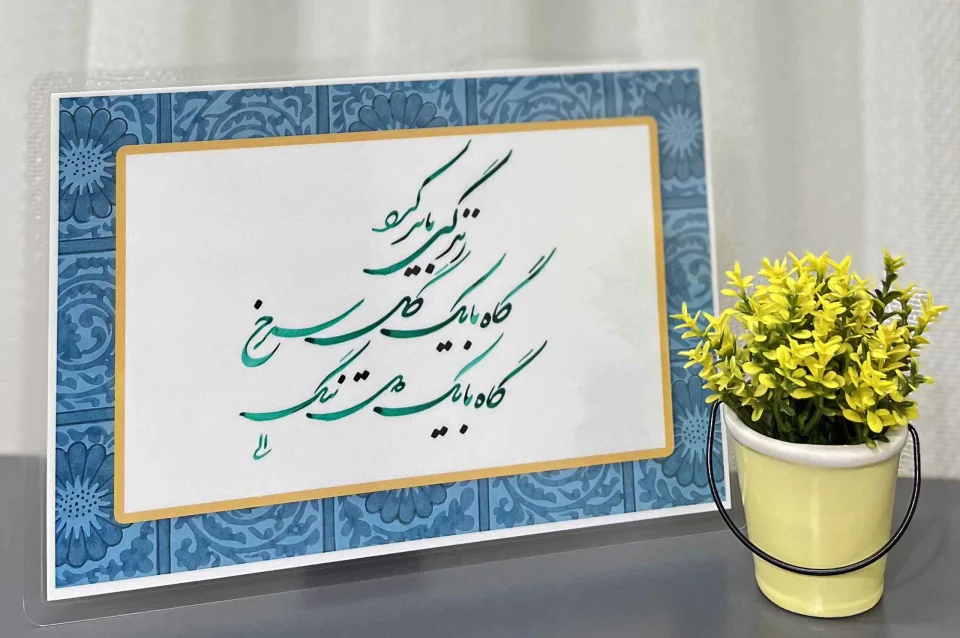 زندگی باید کرد
گاه با یک گل سرخ
گاه با یک دل تنگ